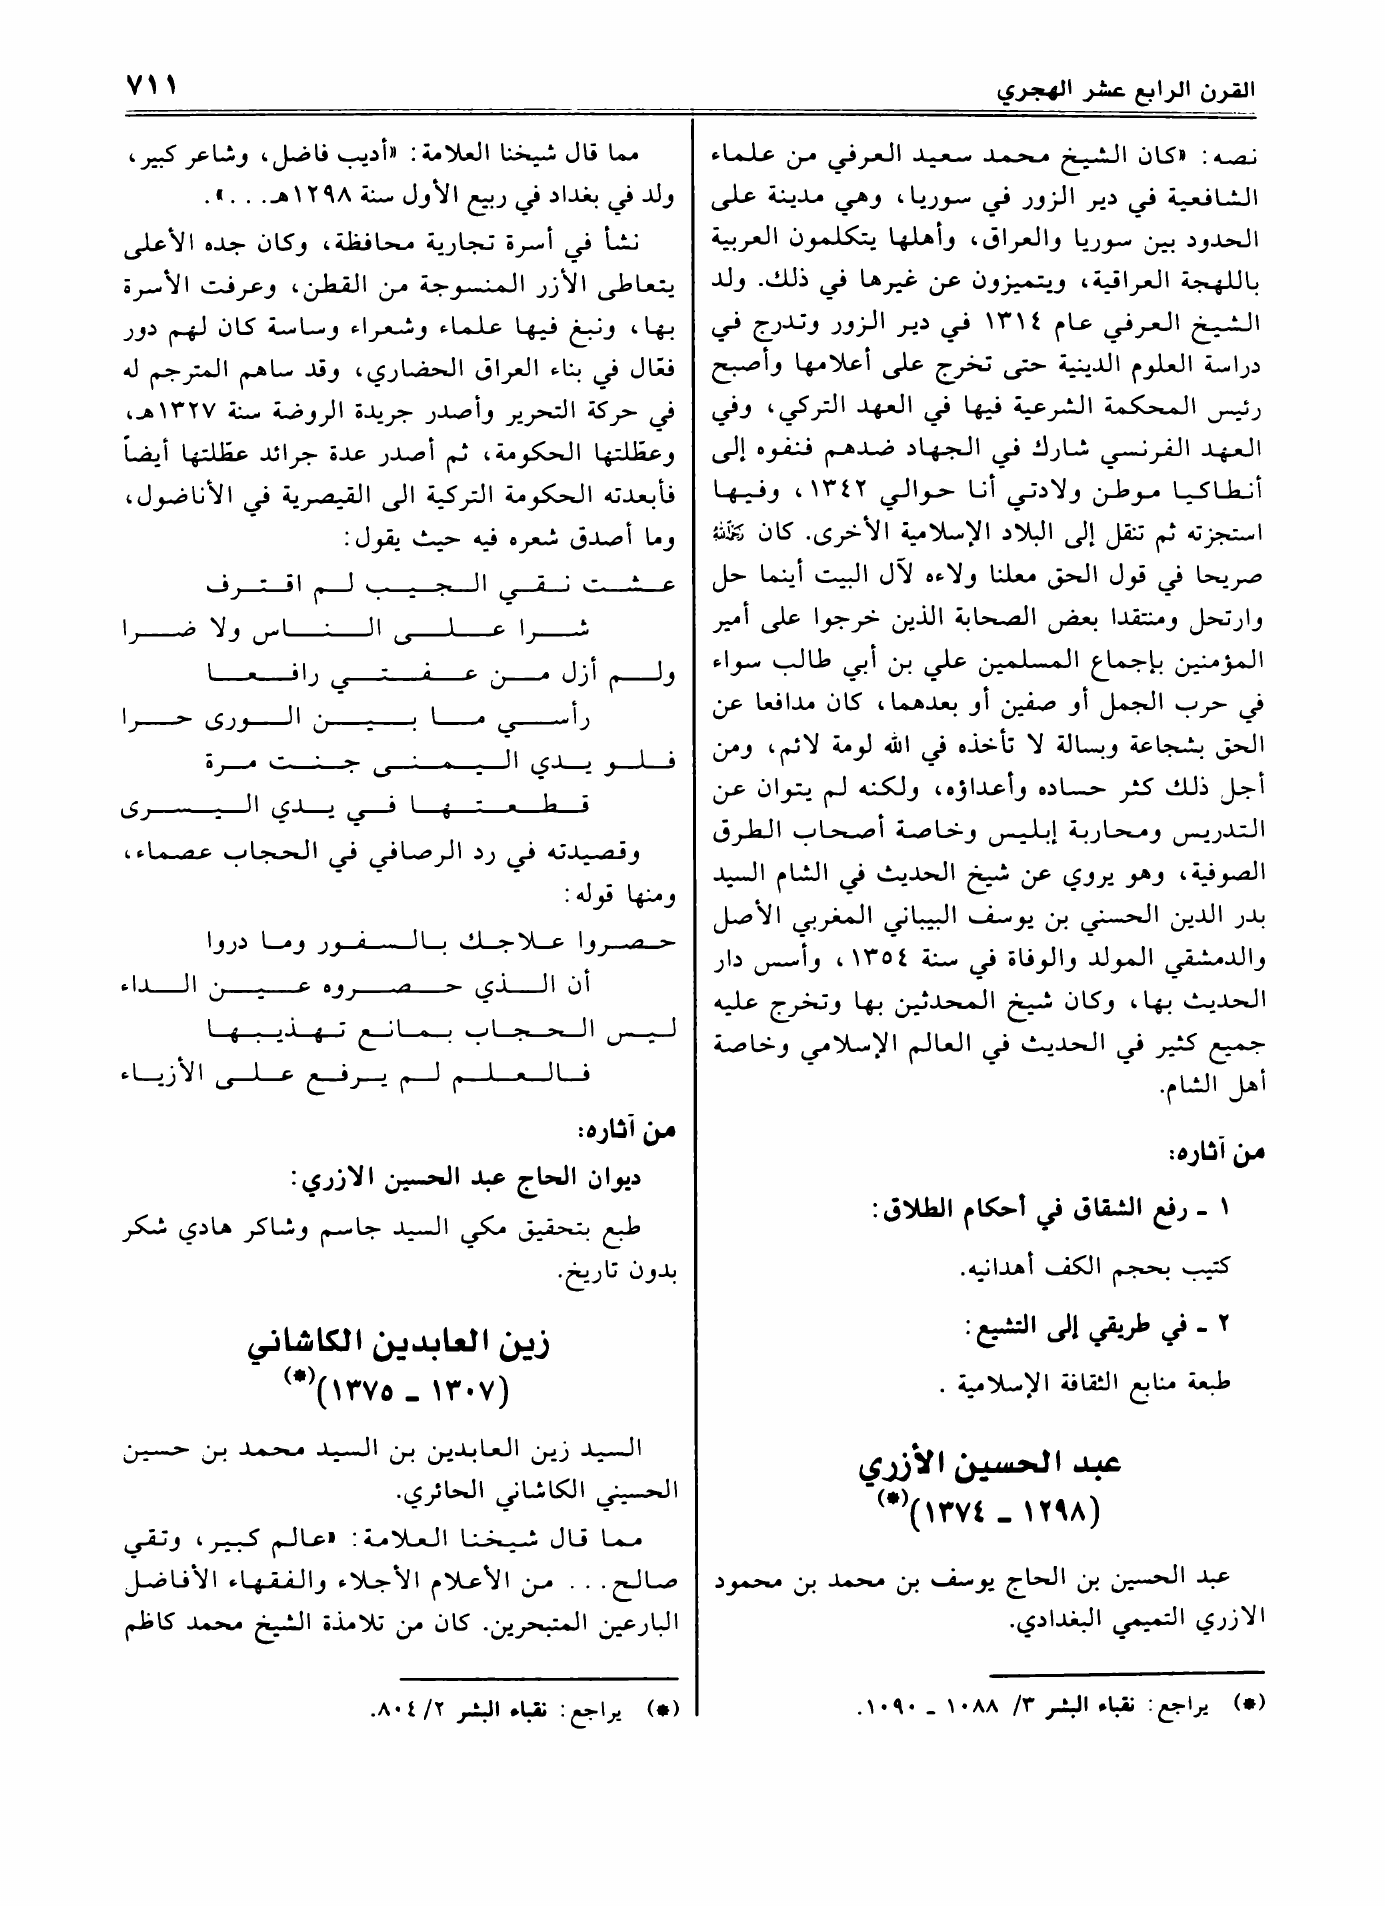 القرن الرابع عشر الهجري
٧١١
نصه: «كان الشيخ محمد سعيد العرفي من علماء
الشافعية في دير الزور في سوريا، وهي مدينة على
الحدود بين سوريا والعراق، وأهلها يتكلمون العربية
باللهجة العراقية، ويتميزون عن غيرها في ذلك. ولد
الشيخ العرفي عام ١٣١٤ في دير الزور وتدرج في
دراسة العلوم الدينية حتى تخرج على أعلامها وأصبح
رئيس المحكمة الشرعية فيها في العهد التركي، وفي
العهد الفرنسي شارك في الجهاد ضدهم فنفوه إلى
أنطاكيا موطن ولادتي أنا حوالي ١٣٤٢، وفيها
استجزته ثم تنقل إلى البلاد الإسلامية الأخرى. كان رحمه الله
صريحا في قول الحق معلنا ولاءه لآل البيت أينما حل
وارتحل ومنتقدا بعض الصحابة الذين خرجوا على أمير
المؤمنين بإجماع المسلمين علي بن أبي طالب سواء
في حرب الجمل أو صفين أو بعدهما، كان مدافعا عن
الحق بشجاعة وبسالة لا تأخذه في الله لومة لائم، ومن
أجل ذلك كثر حساده وأعداؤه، ولكنه لم يتوان عن
التدريس ومحاربة إبليس وخاصة أصحاب الطرق
الصوفية، وهو يروي عن شيخ الحديث في الشام السيد
بدر الدين الحسني بن يوسف البيباني المغربي الأصل
والدمشقي المولد والوفاة في سنة ١٣٥٤، وأسس دار
الحديث بها، وكان شيخ المحدثين بها وتخرج عليه
جميع كثير في الحديث في العالم الإسلامي وخاصة
أهل الشام.
من آثاره:
١ - رفع الشقاق في أحكام الطلاق:
كتيب بحجم الكف أهدانيه.
٢ - في طريقي إلى التشيع:
طبعة منابع الثقافة الإسلامية .
عبد الحسين الأزري
(١٢٩٨ - ١٣٧٤)(*)
عبد الحسين بن الحاج يوسف بن محمد بن محمود
الازري التميمي البغدادي.
(*) يراجع: نقباء البشر ٣/ ١٠٨٨ - ١٠٩٠.
مما قال شيخنا العلامة: «أديب فاضل، وشاعر كبير،
ولد في بغداد في ربيع الأول سنة ١٢٩٨هـ. . . .».
نشأ في أسرة تجارية محافظة، وكان جده الأعلى
يتعاطى الأزر المنسوجة من القطن، وعرفت الأسرة
بها، ونبغ فيها علماء وشعراء وساسة كان لهم دور
فعّال في بناء العراق الحضاري، وقد ساهم المترجم له
في حركة التحرير وأصدر جريدة الروضة سنة ١٣٢٧هـ،
وعطّلتها الحكومة، ثم أصدر عدة جرائد عطّلتها أيضاً
فأبعدته الحكومة التركية الى القيصرية في الأناضول،
وما أصدق شعره فيه حيث يقول:
عشت نقي الجيب لم اقترف
شرا على الناس ولا ضرا
ولم أزل من عفتي رافعا
رأسي ما بين الورى حرا
فلو يدي اليمنى جنت مرة
قطعتها في يدي اليسرى
وقصيدته في رد الرصافي في الحجاب عصماء،
ومنها قوله:
حصروا علاجك بالسفور وما دروا
أن الذي حصروه عين الداء
ليس الحجاب بمانع تهذيبها
فالعلم لم يرفع على الأزياء
من آثاره:
ديوان الحاج عبد الحسين الازري:
طبع بتحقيق مكي السيد جاسم وشاكر هادي شكر
بدون تاريخ.
زين العابدين الكاشاني
(١٣٠٧ - ١٣٧٥)(*)
السيد زين العابدين بن السيد محمد بن حسين
الحسيني الكاشاني الحائري.
مما قال شيخنا العلامة: «عالم كبير، وتقي
صالح. . . من الأعلام الأجلاء والفقهاء الأفاضل
البارعين المتبحرين. كان من تلامذة الشيخ محمد كاظم
(*) يراجع: نقباء البشر ٢/ ٨٠٤.